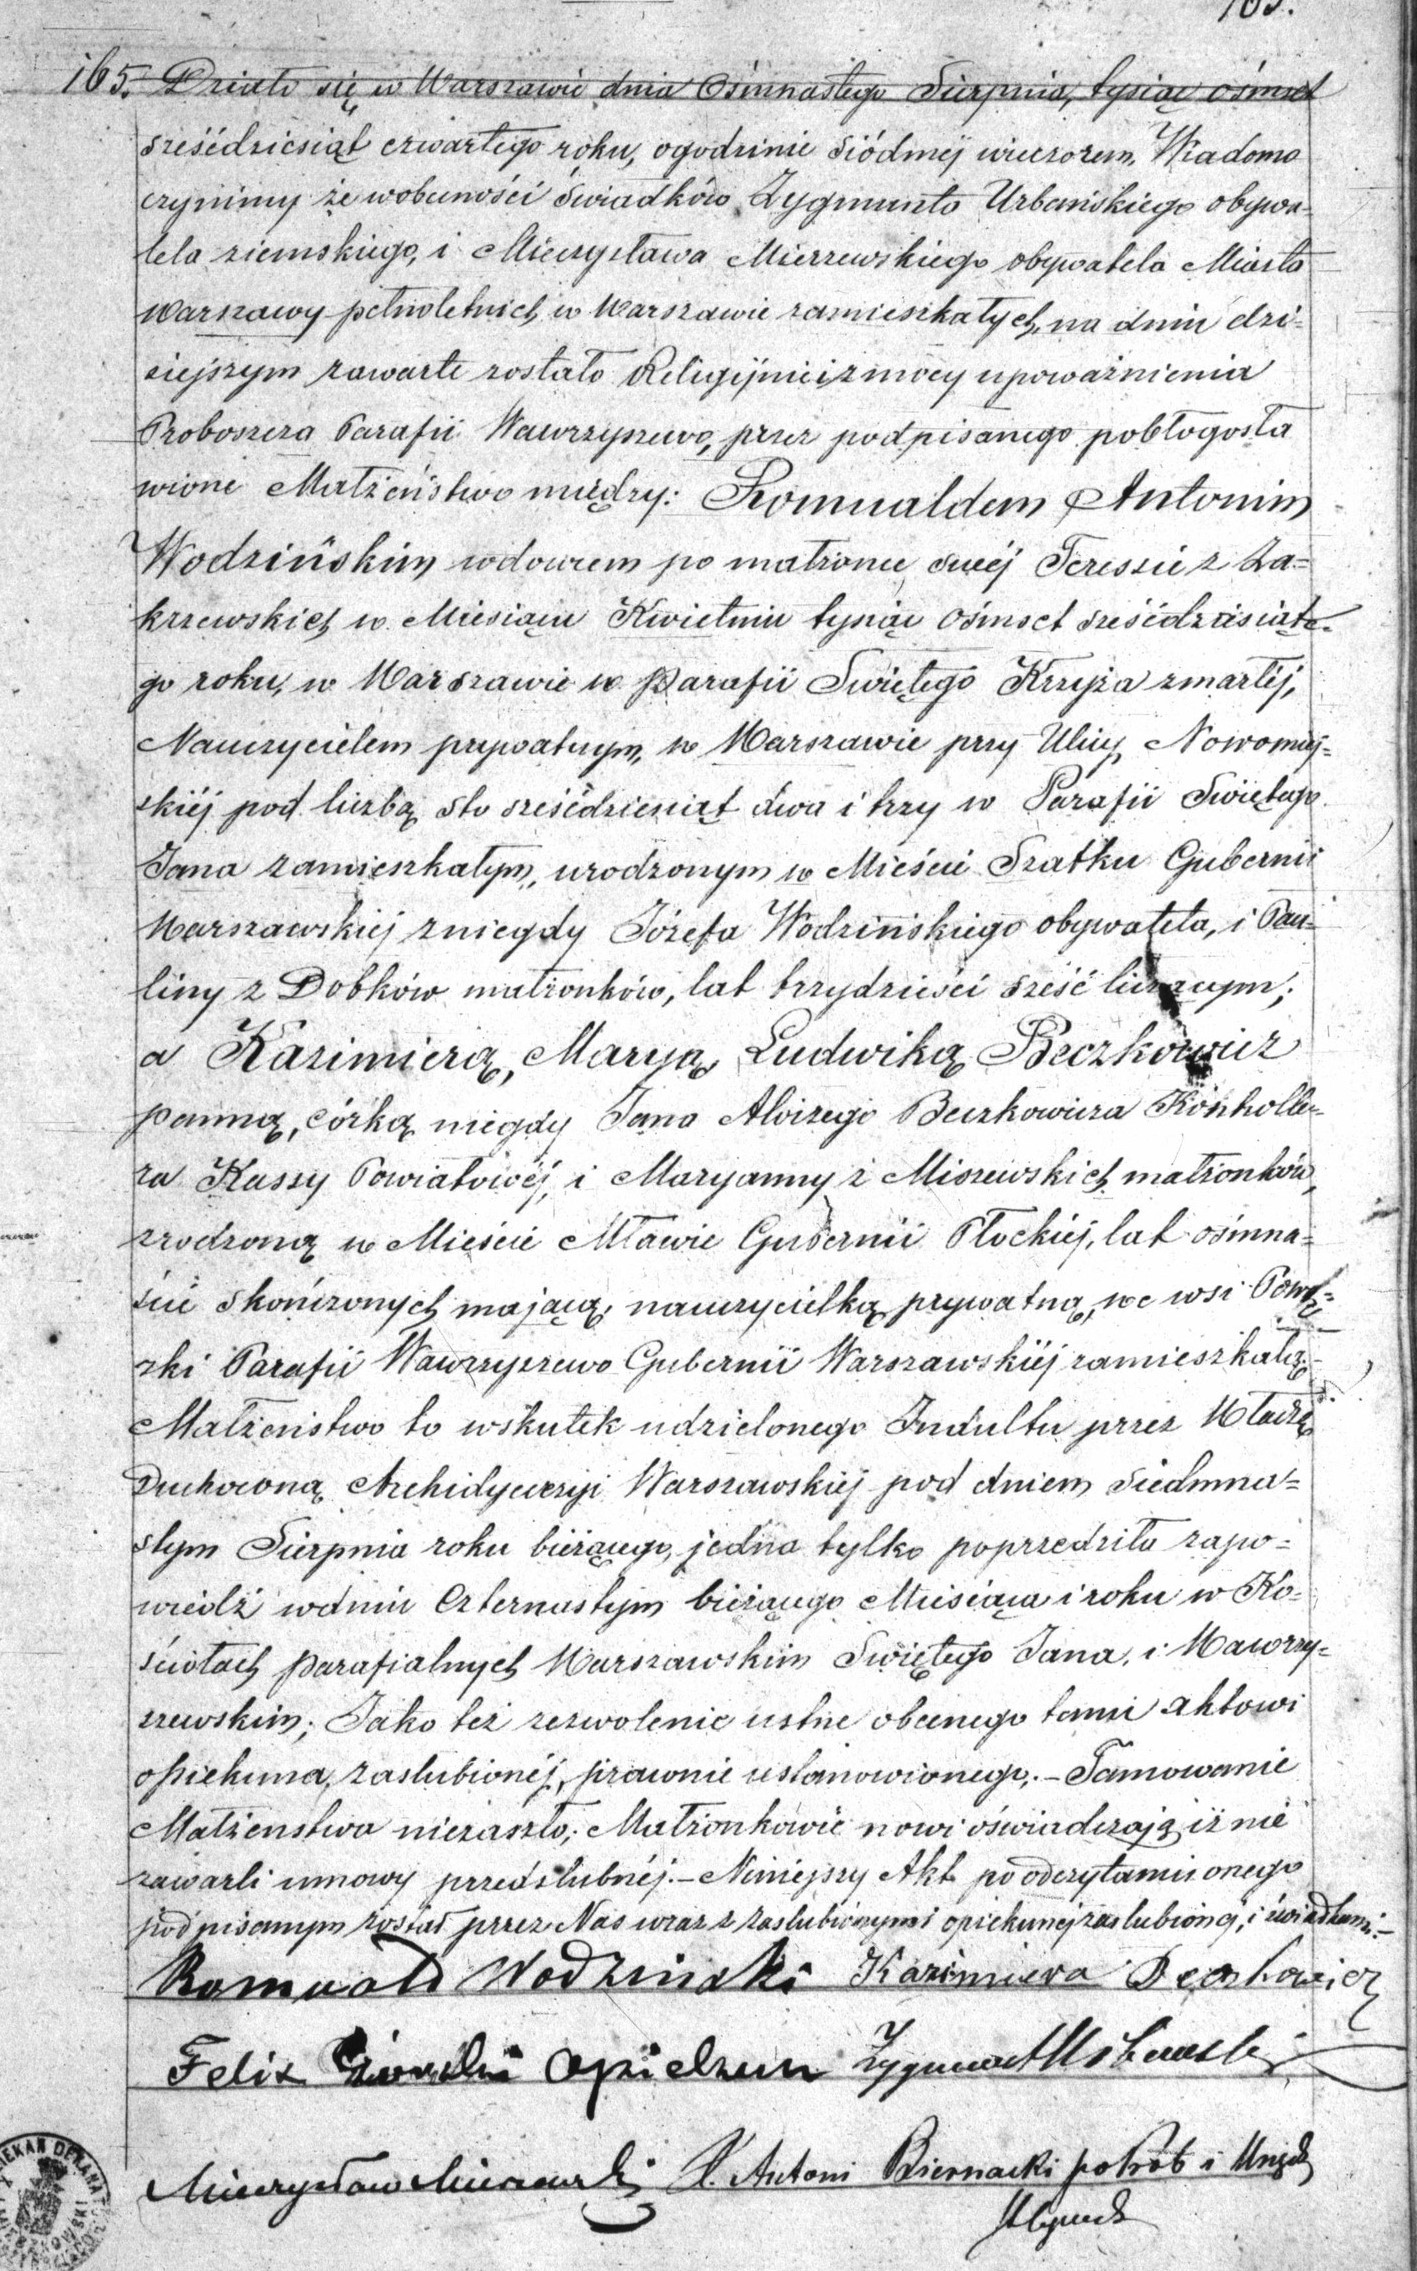 165.
165. Działo się w Warszawie dnia Ośmnastego Sierpnia, tysiąc ośmset
sześćdziesiąt czwartego roku, o godzinie siódmej wieczorem. Wiadomo
czynimy że w obecności świadków Zygmunta Urbańskiego obywa-
tela ziemskiego, i Mieczysława Mierzewskiego obywatela Miasta
Warszawy pełnoletnich, w Warszawie zamieszkałych, na dniu dzi-
siejszym zawarte zostało Religijnie i z mocy upoważnienia
Proboszcza Parafii Wawrzyszewo, przez podpisanego pobłogosła
wione Małżeństwo między: Romualdem Antonim
Wodzińskim wdowcem po małżonce swej Teressie z Za-
krzewskich w Miesiącu Kwietniu tysiąc ośmset sześćdziesiąte-
go roku, w Warszawie w parafii Świętego Krzyża zmarłej,
Nauczycielem prywatnym, w Warszawie przy Ulicy Nowomiej-
skiéj pod liczbą sto sześćdziesiąt dwa i trzy w Parafii Świętego
Jana zamieszkałym, urodzonym w Mieście Szatku Gubernii
Warszawskiej z niegdy Józefa Wodzińskiego obywatela, i Pau-
liny z Dobków małżonków, lat trzydzieści sześć liczącym;
a Kazimierą, Maryą, Ludwiką Beczkowicz
panną, córką niegdy Jana Alojzego Beczkowicza Kontrolle-
ra Kassy Powiatowéj, i Maryanny z Miszewskich małżonków,
zrodzoną w Mieście Mławie Gubernii Płockiéj, lat ośmna-
ście skończonych mającą, nauczycielką prywatną, we wsi Pową-
zki Parafii Wawrzyszewo Gubernii Warszawskiéj zamieszkałą.-
Małżeństwo to w skutek udzielonego Indultu przez Władzę
Duchowną Archidyecezyi Warszawskiej pod dniem siedmna-
stym Sierpnia roku bieżącego, jedna tylko poprzedziła zapo-
wiedź w dniu czternastym bieżącego Miesiąca i roku w Ko-
ściołach parafialnych Warszawskim Świętego Jana, i Wawrzy-
szewskim; Jako też zezwolenie ustne obecnego temu aktowi
opiekuna, zaślubionéj, prawnie ustanowionego.- Tamowanie
Małżeństwa niezaszło; Małżonkowie nowi oświadczają iż nie
zawarli umowy przedślubnéj.- Niniejszy Akt po odczytaniu onego
podpisanym został przez Nas wraz z zaślubionymi opiekunem zaślubionej, i świadkami.-
Romuald Wodziński Kazimiera Beczkowicz
Felix opiekun Zygmunt Urbański
Mieczysław Mierzewski X. Antoni Biernacki